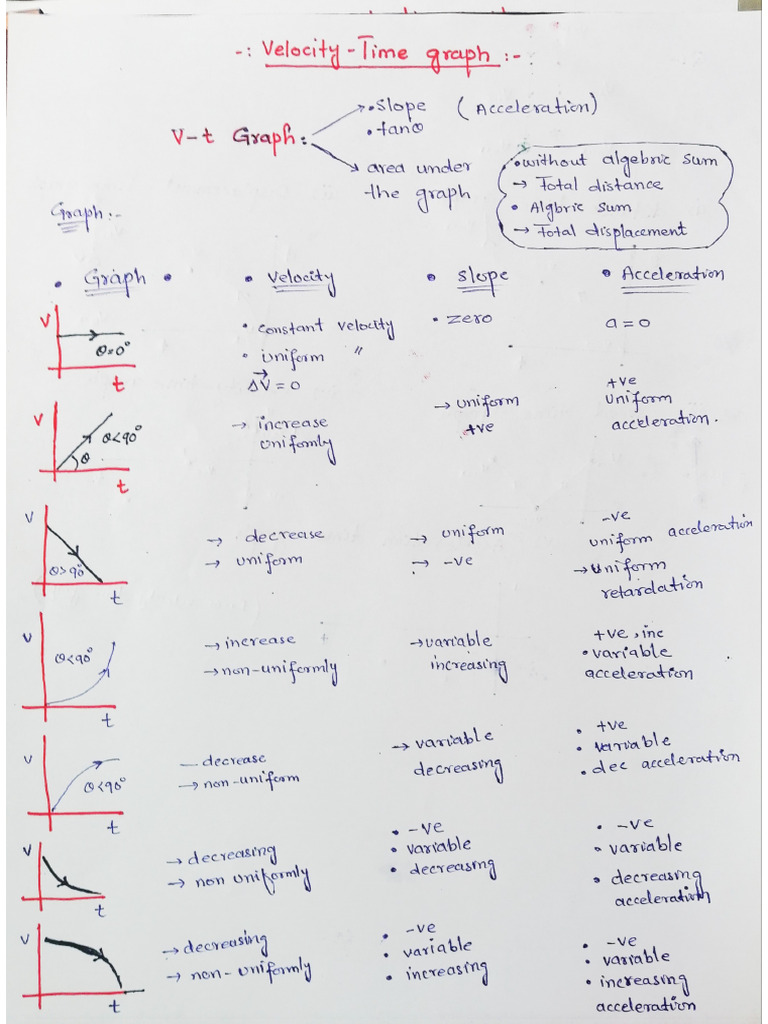 -: Velocity-Time graph :-
V-t Graph:
• Slope (Acceleration)
• tanθ
area under
the graph
• without algebric sum
→ Total distance
• Algbric sum
→ Total displacement
Graph:-
• Graph •
• Velocity
• Slope
• Acceleration
V
θ=0°
t
• constant velocity
• uniform "
ΔV = 0
• zero
a = 0
V
θ<90°
θ
t
→ increase
uniformly
→ uniform
+ve
+ve
uniform
acceleration.
V
θ>90°
t
→ decrease
→ uniform
→ uniform
→ -ve
-ve
uniform acceleration
→ uniform
retardation
V
θ<90°
t
→ increase
→ non-uniformly
→ variable
increasing
+ve, inc
• variable
acceleration
V
θ<90°
t
— decrease
→ non-uniform
→ variable
decreasing
• +ve
• variable
• dec acceleration
V
t
→ decreasing
→ non uniformly
• -ve
• variable
• decreasing
• -ve
• variable
• decreasing
acceleration
V
t
→ decreasing
→ non-uniformly
• -ve
• variable
• increasing
• -ve
• variable
• increasing
acceleration